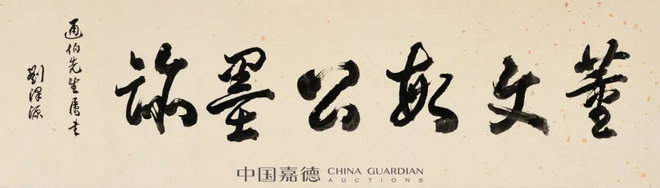 董文敏公墨跡
通伯先生属書
劉澤源
中国嘉德 CHINA GUARDIAN
AUCTIONS